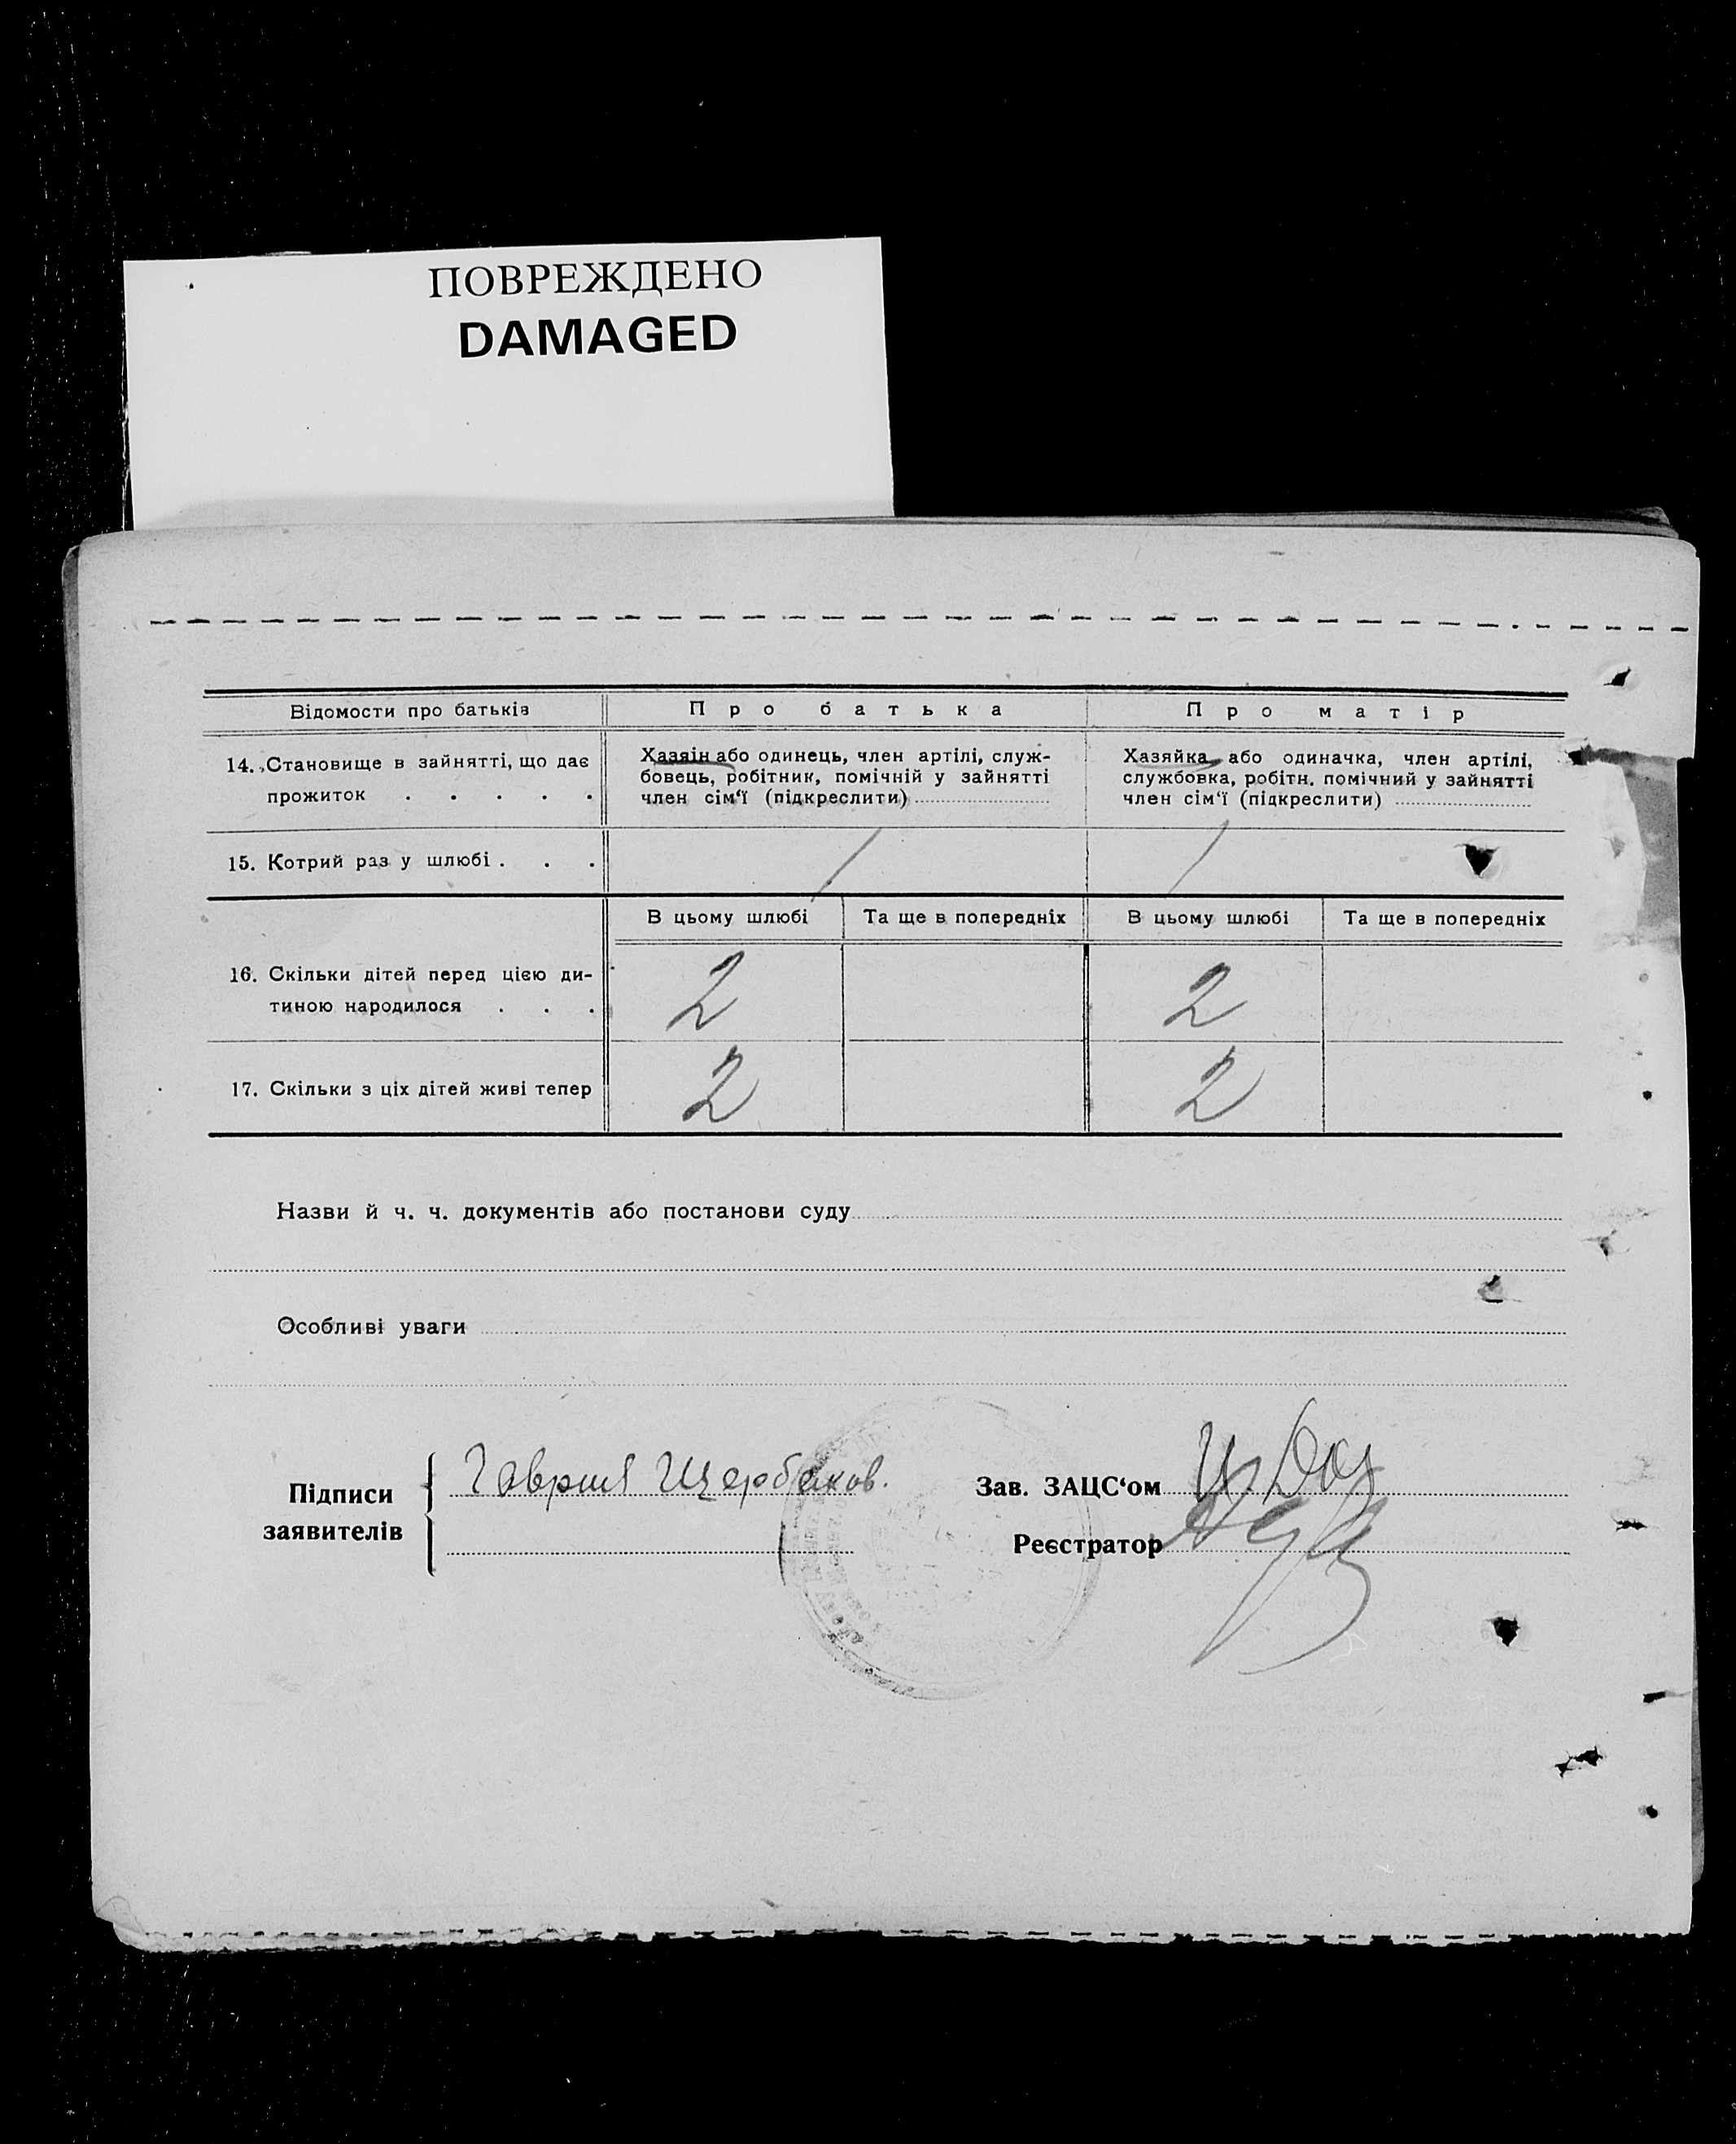 ПОВРЕЖДЕНО
DAMAGED
Відомости про батьків
Про батька
Про матір
14. Становище в зайнятті, що дає
прожиток . . . . .
Хазяін або одинець, член артілі, служ-
бовець, робітник, помічній у зайнятті
член сім‘ї (підкреслити)
Хазяйка або одиначка, член артілі,
службовка, робітн. помічний у зайнятті
член сім‘ї (підкреслити)
15. Котрий раз у шлюбі . . .
1
1
В цьому шлюбі
Та ще в попередніх
В цьому шлюбі
Та ще в попередніх
16. Скільки дітей перед цією ди-
тиною народилося . . .
2
2
17. Скільки з ціх дітей живі тепер
2
2
Назви й ч. ч. документів або постанови суду
Особливі уваги
Підписи
заявителів
Гавриил Щербаков.
Зав. ЗАЦС‘ом
Реєстратор